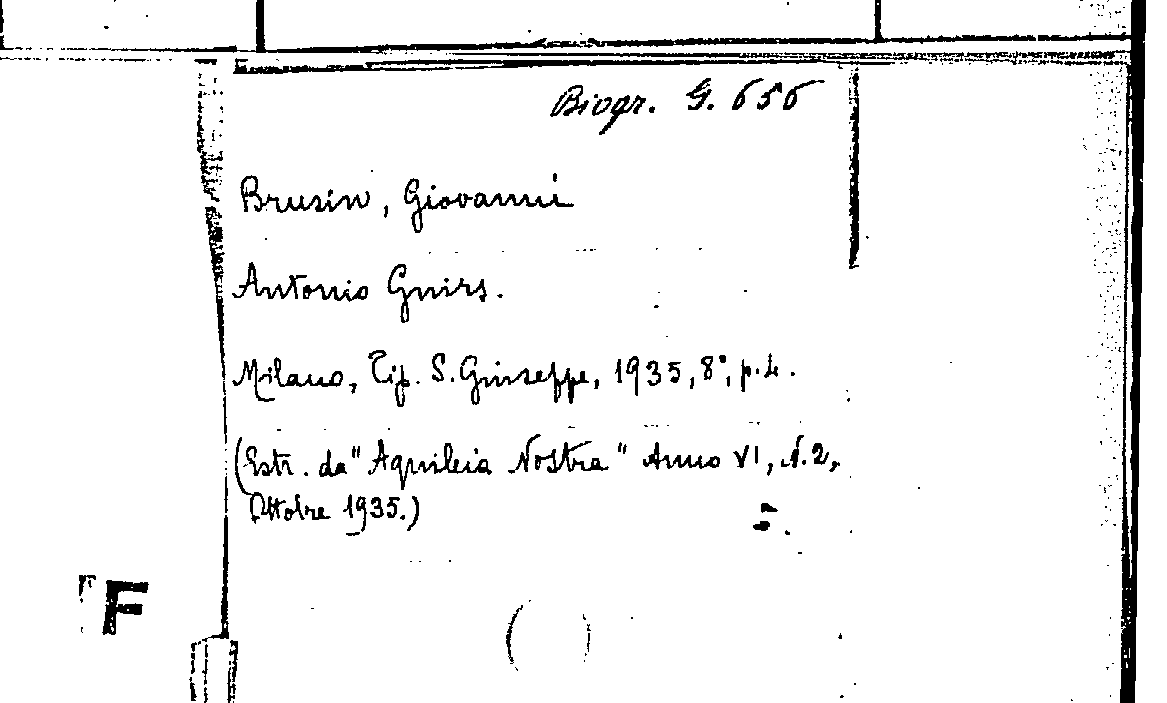 Biogr. G. 656
Brusin, Giovanni
Antonio Gnirs.
Milano, Tip. S. Giuseppe, 1935, 8°, p. 4.
(Estr. da "Aquileia Nostra" Anno VI, N. 2,
Ottobre 1935.)
F